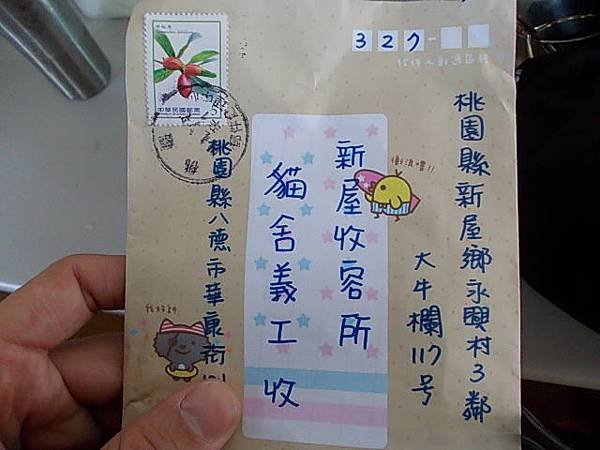 327-
桃園縣新屋鄉永興村3鄰
大牛欄117号
新屋收容所
貓舍義工收
桃園縣八德市華康街
中華民國郵票